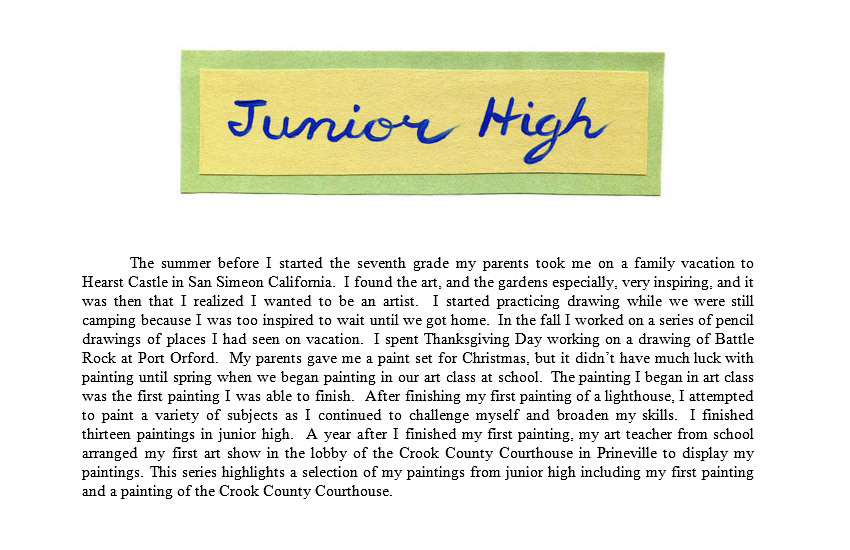 Junior High
The summer before I started the seventh grade my parents took me on a family vacation to
Hearst Castle in San Simeon California.  I found the art, and the gardens especially, very inspiring, and it
was then that I realized I wanted to be an artist.  I started practicing drawing while we were still
camping because I was too inspired to wait until we got home.  In the fall I worked on a series of pencil
drawings of places I had seen on vacation.  I spent Thanksgiving Day working on a drawing of Battle
Rock at Port Orford.  My parents gave me a paint set for Christmas, but it didn’t have much luck with
painting until spring when we began painting in our art class at school.  The painting I began in art class
was the first painting I was able to finish.  After finishing my first painting of a lighthouse, I attempted
to paint a variety of subjects as I continued to challenge myself and broaden my skills.  I finished
thirteen paintings in junior high.  A year after I finished my first painting, my art teacher from school
arranged my first art show in the lobby of the Crook County Courthouse in Prineville to display my
paintings. This series highlights a selection of my paintings from junior high including my first painting
and a painting of the Crook County Courthouse.